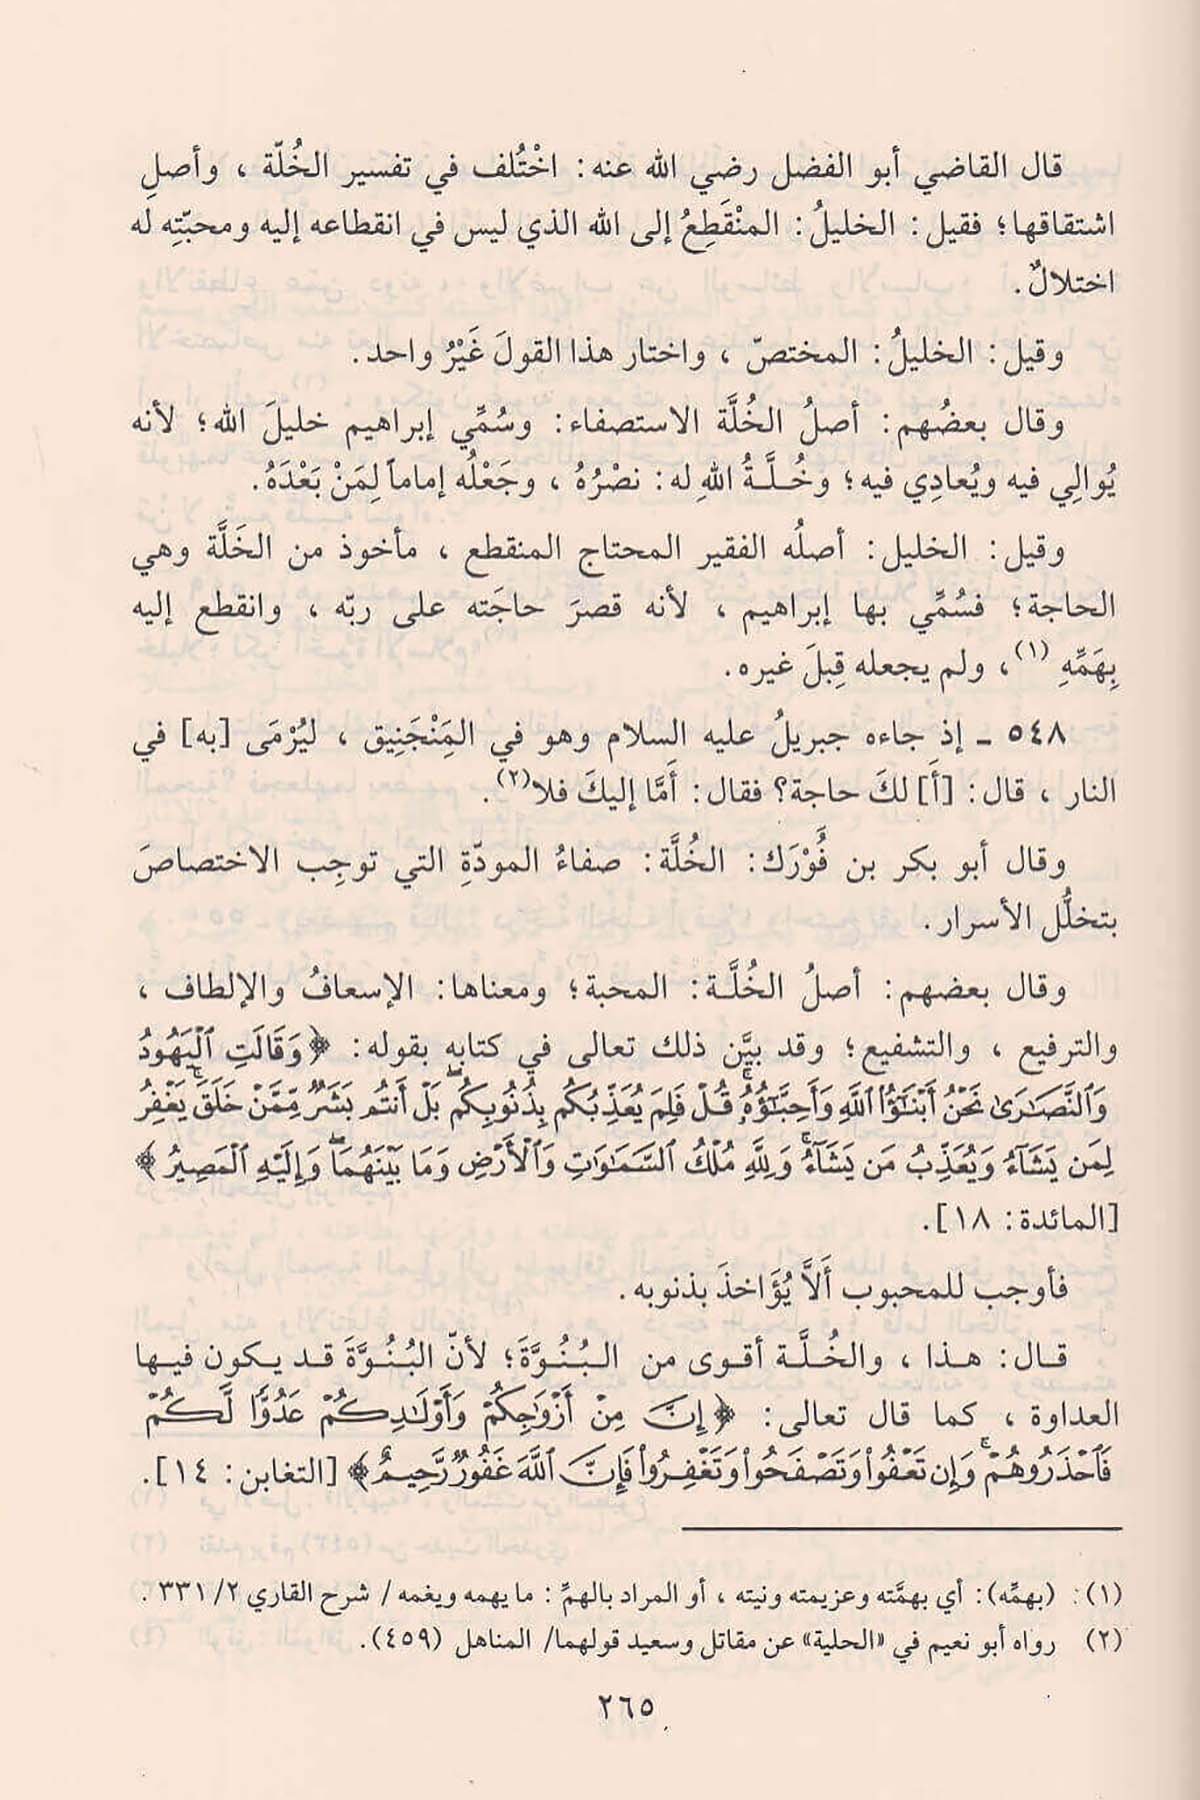 قال القاضي أبو الفضل رضي الله عنه: اخْتُلف في تفسير الخُلّة ، وأصلِ
اشتقاقها؛ فقيل: الخليلُ: المنْقَطِعُ إلى الله الذي ليس في انقطاعه إليه ومحبّتِه له
اختلالٌ.
وقيل: الخليلُ: المختصّ ، واختار هذا القولَ غَيْرُ واحد.
وقال بعضُهم: أصلُ الخُلَّة الاستصفاء: وسُمِّي إبراهيم خليلَ الله؛ لأنه
يُوالِي فيه ويُعادِي فيه؛ وخُلَّةُ اللهِ له: نصْرُهُ ، وجَعْلُه إماماً لِمَنْ بَعْدَهُ.
وقيل: الخليل: أصلُه الفقير المحتاج المنقطع ، مأخوذ من الخَلَّة وهي
الحاجة؛ فسُمِّي بها إبراهيم ، لأنه قصرَ حاجَته على ربّه ، وانقطع إليه
بِهَمِّهِ (١)، ولم يجعله قِبلَ غيره.
٥٤٨ - إذ جاءه جبريلُ عليه السلام وهو في المَِنْجَنِيق ، ليُرْمَى [به] في
النار ، قال: [أَ] لكَ حاجة؟ فقال: أَمَّا إليكَ فلا(٢).
وقال أبو بكر بن فُوْرَك: الخُلَّة: صفاءُ المودّةِ التي توجِب الاختصاصَ
بتخلُّل الأسرار.
وقال بعضهم: أصلُ الخُلَّة: المحبة؛ ومعناها: الإسعافُ والإلطاف ،
والترفيع ، والتشفيع؛ وقد بيَّن ذلك تعالى في كتابه بقوله: ﴿وَقَالَتِ ٱلْيَهُودُ
وَٱلنَّصَٰرَىٰ نَحْنُ أَبْنَٰٓؤُا۟ ٱللَّهِ وَأَحِبَّٰٓؤُهُۥ ۚ قُلْ فَلِمَ يُعَذِّبُكُم بِذُنُوبِكُم ۖ بَلْ أَنتُم بَشَرٌ مِّمَّنْ خَلَقَ ۚ يَغْفِرُ
لِمَن يَشَآءُ وَيُعَذِّبُ مَن يَشَآءُ ۚ وَلِلَّهِ مُلْكُ ٱلسَّمَٰوَٰتِ وَٱلْأَرْضِ وَمَا بَيْنَهُمَا ۖ وَإِلَيْهِ ٱلْمَصِيرُ﴾
[المائدة: ١٨].
فأوجب للمحبوب أَلاَّ يُؤَاخذَ بذنوبه.
قال: هذا ، والخُلَّة أقوى من البُنُوَّة؛ لأنّ البُنُوَّةَ قد يكون فيها
العداوة ، كما قال تعالى: ﴿إِنَّ مِنْ أَزْوَٰجِكُمْ وَأَوْلَٰدِكُمْ عَدُوًّا لَّكُمْ
فَٱحْذَرُوهُمْ ۚ وَإِن تَعْفُوا۟ وَتَصْفَحُوا۟ وَتَغْفِرُوا۟ فَإِنَّ ٱللَّهَ غَفُورٌ رَّحِيمٌ﴾ [التغابن: ١٤].
(١): (بهمِّه): أي بهمَّته وعزيمته ونيته ، أو المراد بالهمِّ: ما يهمه ويغمه/ شرح القاري ٢/ ٣٣١.
(٢) رواه أبو نعيم في «الحلية» عن مقاتل وسعيد قولهما/ المناهل (٤٥٩).
٢٦٥